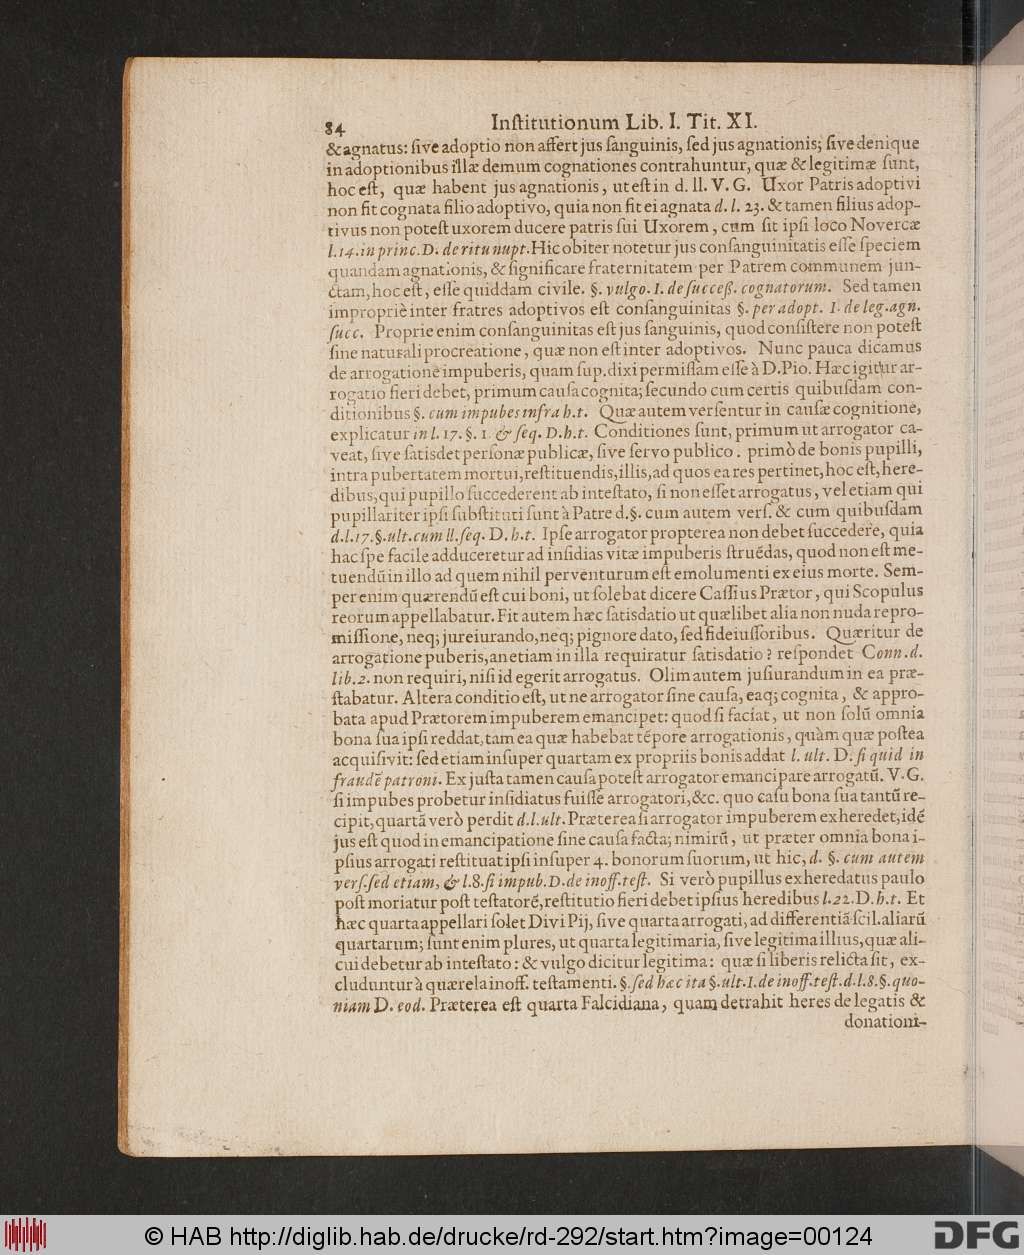 84 Inſtitutionum Lib. I. Tit. XI.
& agnatus: ſive adoptio non affert jus ſanguinis, ſed jus agnationis; ſive denique
in adoptionibus illæ demum cognationes contrahuntur, quæ & legitimæ ſunt,
hoc eſt, quæ habent jus agnationis, ut eſt in d. ll. V. G. Uxor Patris adoptivi
non fit cognata filio adoptivo, quia non fit ei agnata d. l. 23. & tamen filius adop-
tivus non poteſt uxorem ducere patris ſui Uxorem, cum ſit ipſi loco Novercæ
l. 14. in princ. D. de ritu nupt. Hic obiter notetur jus conſanguinitatis eſſe ſpeciem
quandam agnationis, & ſignificare fraternitatem per Patrem communem jun-
ctam, hoc eſt, eſſe quiddam civile. §. vulgo. I. de ſucceſſ. cognatorum. Sed tamen
impropriè inter fratres adoptivos eſt conſanguinitas §. per adopt. I. de leg. agn.
ſucc. Proprie enim conſanguinitas eſt jus ſanguinis, quod conſiſtere non poteſt
ſine naturali procreatione, quæ non eſt inter adoptivos. Nunc pauca dicamus
de arrogatione impuberis, quam ſup. dixi permiſſam eſſe à D. Pio. Hæc igitur ar-
rogatio fieri debet, primum cauſa cognita; ſecundo cum certis quibuſdam con-
ditionibus §. cum impubes infra h.t. Quæ autem verſentur in cauſæ cognitione,
explicatur in l. 17. §. 1. & ſeq. D. h.t. Conditiones ſunt, primum ut arrogator ca-
veat, ſive ſatisdet perſonæ publicæ, ſive ſervo publico. primò de bonis pupilli,
intra pubertatem mortui, reſtituendis, illis, ad quos ea res pertinet, hoc eſt, here-
dibus, qui pupillo ſuccederent ab inteſtato, ſi non eſſet arrogatus, vel etiam qui
pupillariter ipſi ſubſtituti ſunt à Patre d.§. cum autem verſ. & cum quibuſdam
d.l. 17. §. ult. cum ll. ſeq. D. h.t. Ipſe arrogator propterea non debet ſuccedere, quia
hac ſpe facile adduceretur ad inſidias vitæ impuberis ſtruēdas, quod non eſt me-
tuendū in illo ad quem nihil perventurum eſt emolumenti ex eius morte. Sem-
per enim quærendū eſt cui boni, ut ſolebat dicere Caſſius Prætor, qui Scopulus
reorum appellabatur. Fit autem hæc ſatisdatio ut quælibet alia non nuda repro-
miſſione, neq; jureiurando, neq; pignore dato, ſed fideiuſſoribus. Quæritur de
arrogatione puberis, an etiam in illa requiratur ſatisdatio? reſpondet Conn. d.
lib. 2. non requiri, niſi id egerit arrogatus. Olim autem jusiurandum in ea præ-
ſtabatur. Altera conditio eſt, ut ne arrogator ſine cauſa, eaq; cognita, & appro-
bata apud Prætorem impuberem emancipet: quod ſi faciat, ut non ſolū omnia
bona ſua ipſi reddat, tam ea quæ habebat tēpore arrogationis, quàm quæ poſtea
acquiſivit: ſed etiam inſuper quartam ex propriis bonis addat l. ult. D. ſi quid in
fraudē patroni. Ex juſta tamen cauſa poteſt arrogator emancipare arrogatū. V.G.
ſi impubes probetur inſidiatus fuiſſe arrogatori, &c. quo caſu bona ſua tantū re-
cipit, quartā verò perdit d.l. ult. Præterea ſi arrogator impuberem exheredet, idē
jus eſt quod in emancipatione ſine cauſa facta; nimirū, ut præter omnia bona i-
pſius arrogati reſtituat ipſi inſuper 4. bonorum ſuorum, ut hic, d. §. cum autem
verſ. ſed etiam, & l. 8. ſi impub. D. de inoff. teſt. Si verò pupillus exheredatus paulo
poſt moriatur poſt teſtatorē, reſtitutio fieri debet ipſius heredibus l. 22. D. h.t. Et
hæc quarta appellari ſolet Divi Pij, ſive quarta arrogati, ad differentiā ſcil. aliarū
quartarum; ſunt enim plures, ut quarta legitimaria, ſive legitima illius, quæ ali-
cui debetur ab inteſtato: & vulgo dicitur legitima: quæ ſi liberis relicta ſit, ex-
cluduntur à quærela inoff. teſtamenti. §. ſed hæc ita §. ult. I. de inoff. teſt. d. l. 8. §. quo-
niam D. eod. Præterea eſt quarta Falcidiana, quam detrahit heres de legatis &
donationi-
© HAB http://diglib.hab.de/drucke/rd-292/start.htm?image=00124
DFG